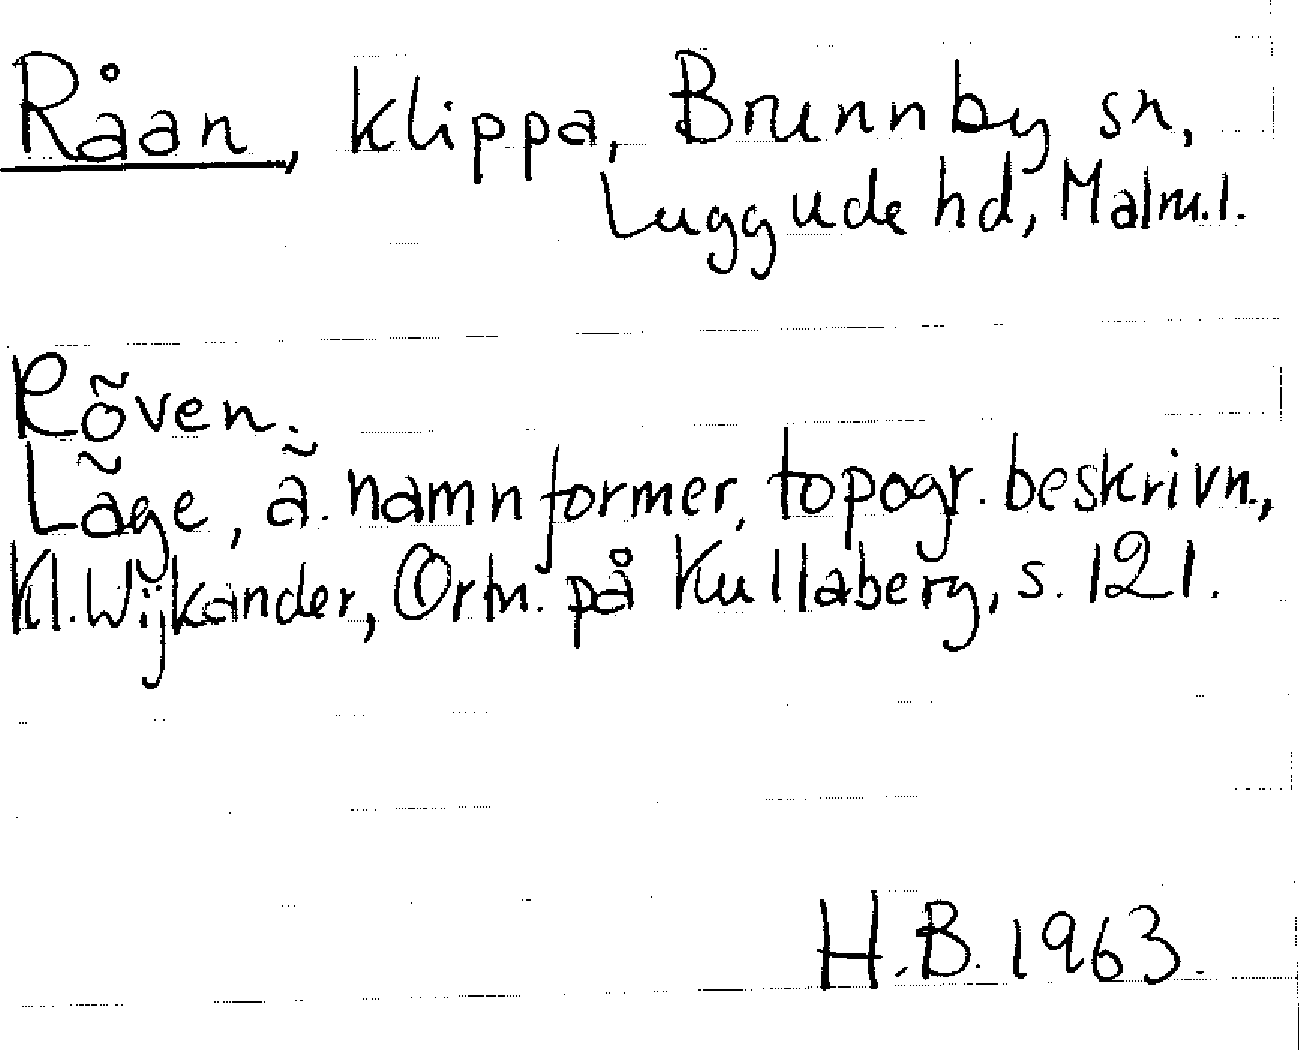 Råan, klippa, Brunnby sn,
Luggude hd, Malm.l.
Röven.
Läge, ä. namnformer, topogr. beskrivn.,
Kl. Wijkander, Ortn. på Kullaberg, s. 121.
H.B. 1963.